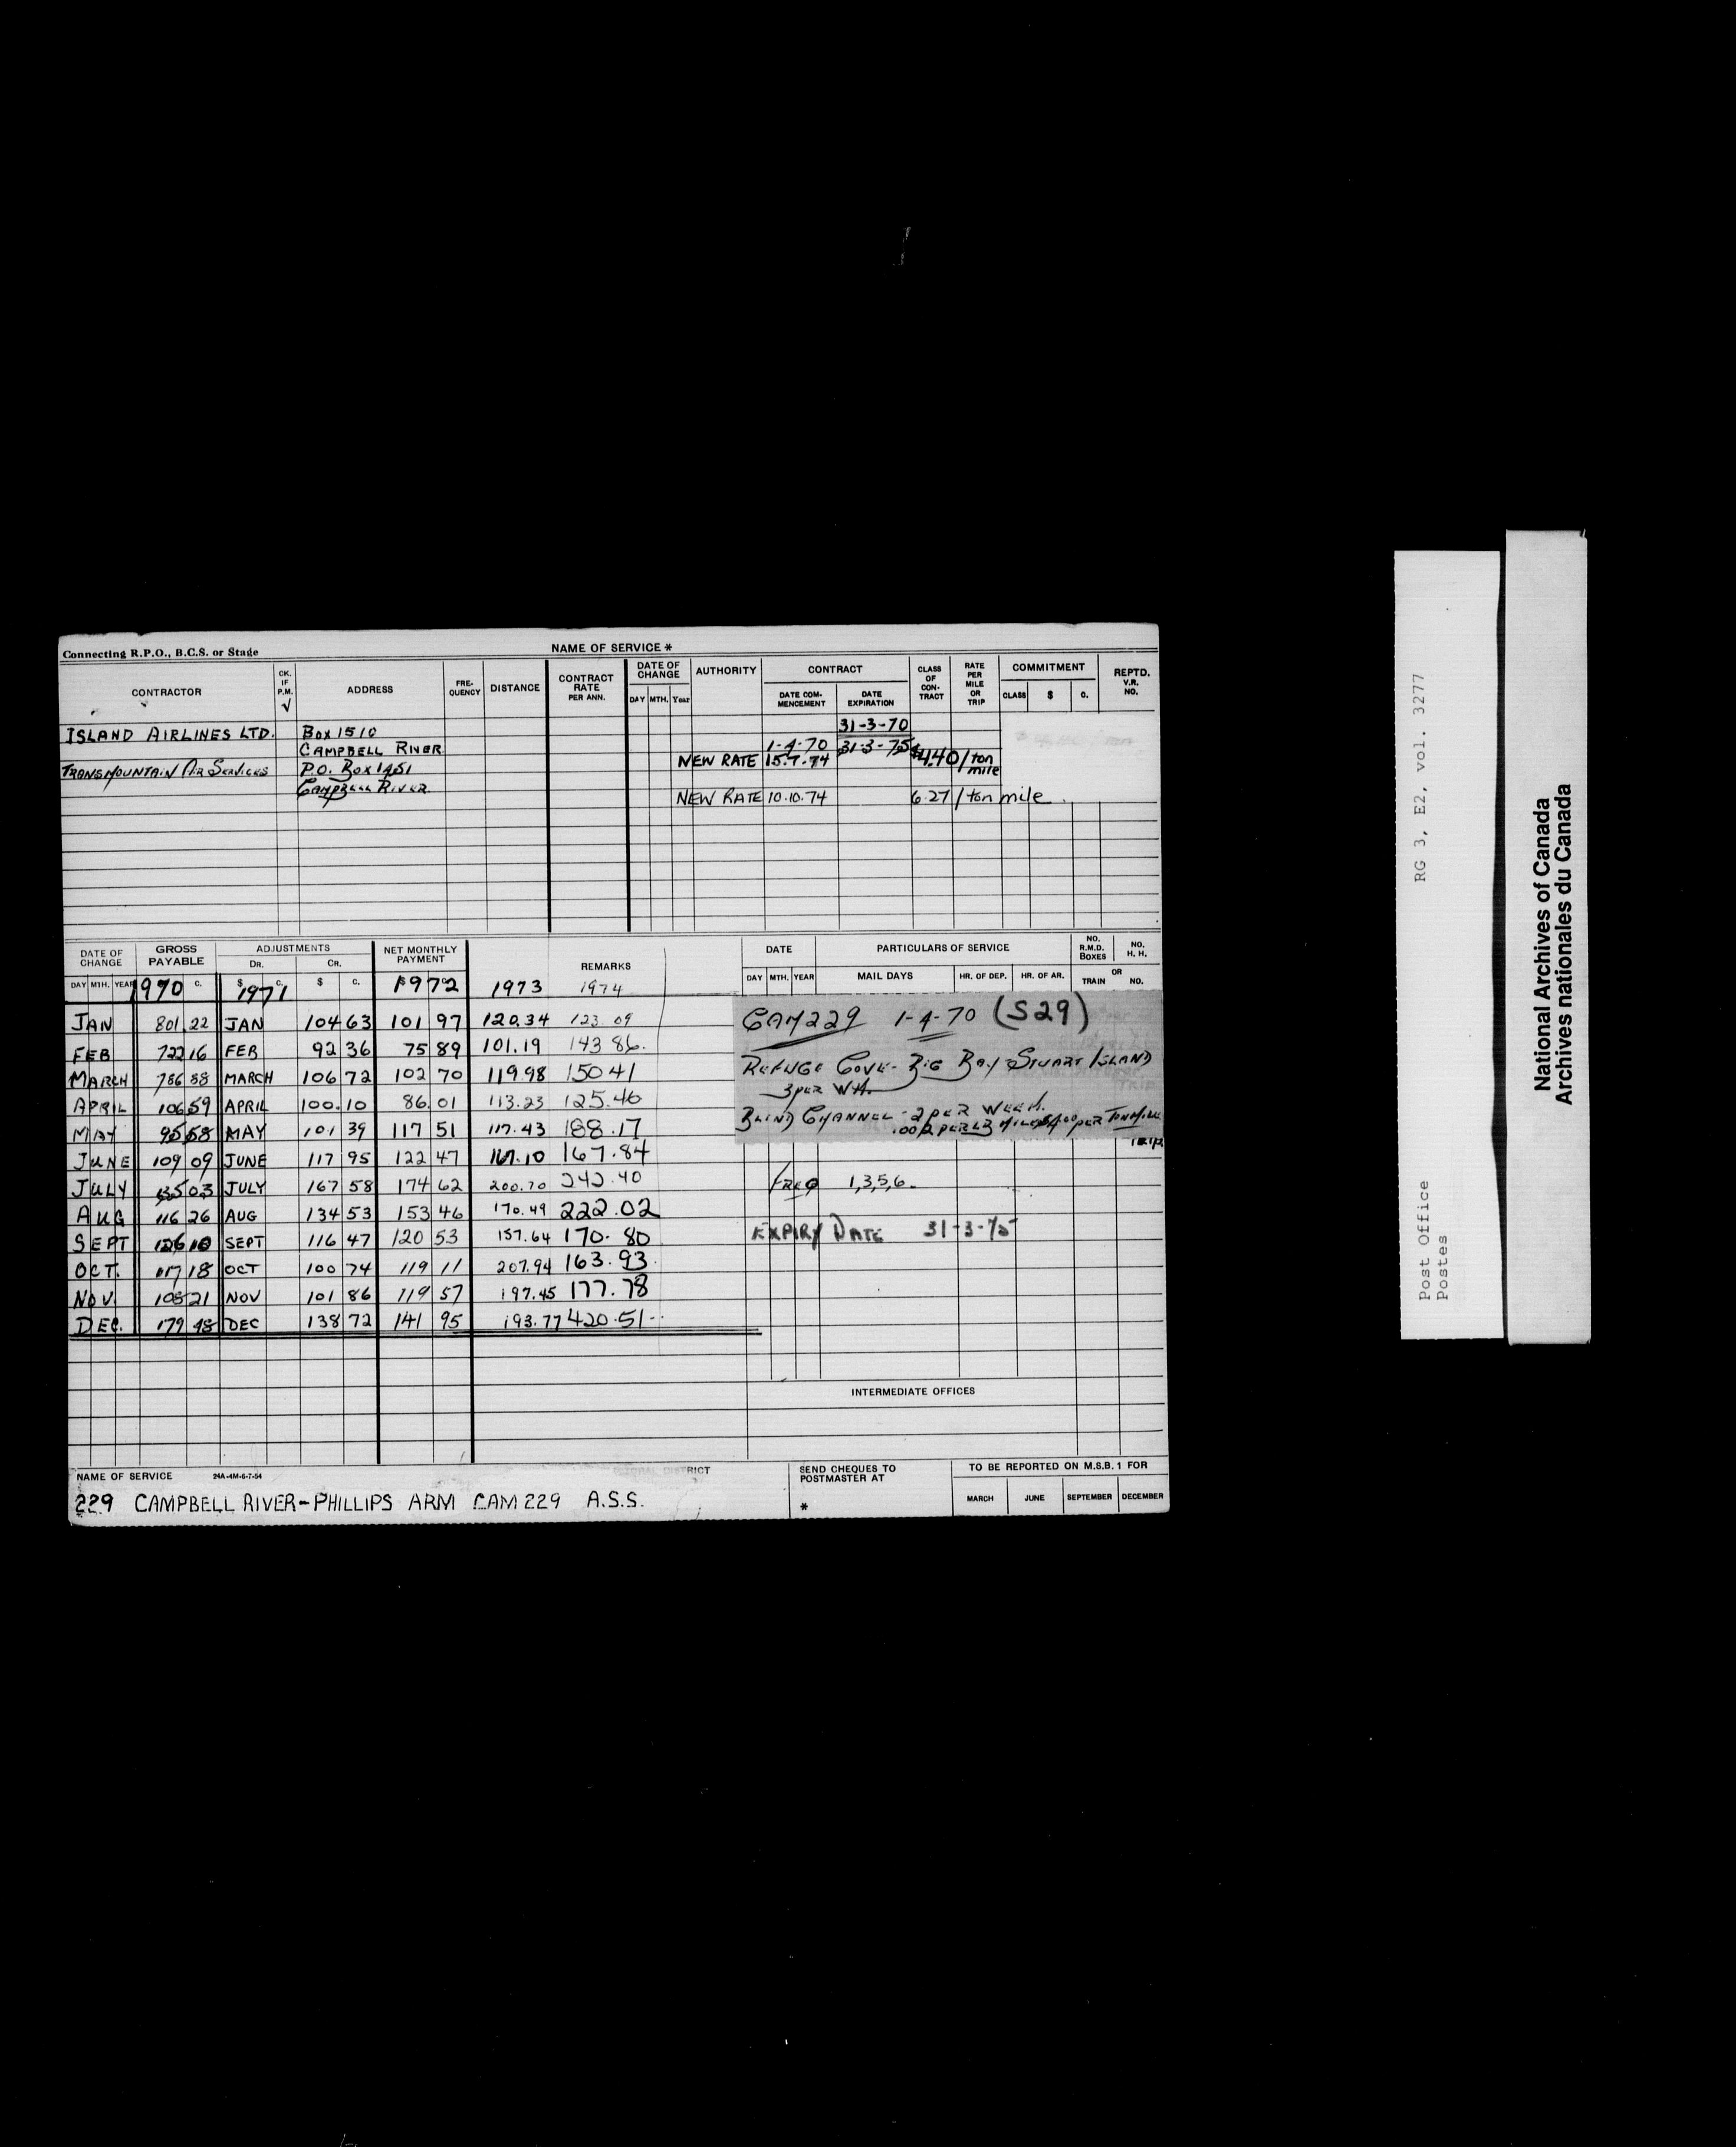 Connecting R.P.O., B.C.S. or Stage
NAME OF SERVICE *
CONTRACTOR CK. IF P.M. √ ADDRESS FRE-QUENCY DISTANCE CONTRACT RATE PER ANN. DATE OF CHANGE DAY MTH. Year AUTHORITY CONTRACT DATE COM-MENCEMENT DATE EXPIRATION CLASS OF CON-TRACT RATE PER MILE OR TRIP COMMITMENT CLASS $ C. REPTD. V.R. NO.
31-3-70
ISLAND AIRLINES LTD. BOX 1510
CAMPBELL RIVER 1-4-70 31-3-75
TRANSMOUNTAIN AIR SERVICES P.O. BOX 1451 NEW RATE 15.7.74 $4.40/ton mile
CAMPBELL RIVER
NEW RATE 10.10.74 6.27/ton mile
DATE OF CHANGE GROSS PAYABLE ADJUSTMENTS DR. CR. NET MONTHLY PAYMENT REMARKS DATE PARTICULARS OF SERVICE NO. R.M.D. BOXES NO. H. H.
DAY MTH. YEAR 1970 C. $ 1971 C. $ C. 1972 1973 1974 DAY MTH. YEAR MAIL DAYS HR. OF DEP. HR. OF AR. TRAIN OR NO.
JAN 801 22 JAN 104 63 101 97 120.34 123.09
FEB 722 16 FEB 92 36 75 89 101.19 143 86.
MARCH 786 58 MARCH 106 72 102 70 119.98 150 41
APRIL 106 59 APRIL 100.10 86.01 113.23 125.46
MAY 95 58 MAY 101 39 117 51 117.43 188.17
JUNE 109 09 JUNE 117 95 122 47 167.84
JULY 03 JULY 167 58 174 62 200.70 242.40
AUG 116 26 AUG 134 53 153 46 170.49 222.02
SEPT 126 10 SEPT 116 47 120 53 157.64 170.80
OCT. 117 18 OCT 100 74 119 11 207.94 163.93
NOV. 108 21 NOV 101 86 119 57 197.45 177.78
DEC. 179 48 DEC 138 72 141 95 193.77 420.51
CAM 229 1-4-70 (S29)
REFUGE COVE - BIG BAY & STUART ISLAND
3 PER WK.
BLIND CHANNEL - 2 PER WEEK.
.002 PER LB MILE $4.00 PER TON MILE
TRIP
FREQ 1,3,5,6.
EXPIRY DATE 31-3-75
INTERMEDIATE OFFICES
NAME OF SERVICE 24A-4M-6-7-54 RICT
SEND CHEQUES TO POSTMASTER AT
*
TO BE REPORTED ON M.S.B. 1 FOR
MARCH JUNE SEPTEMBER DECEMBER
229 CAMPBELL RIVER-PHILLIPS ARM CAM 229 A.S.S.
RG 3, E2, vol. 3277
Post Office
Postes
National Archives of Canada
Archives nationales du Canada